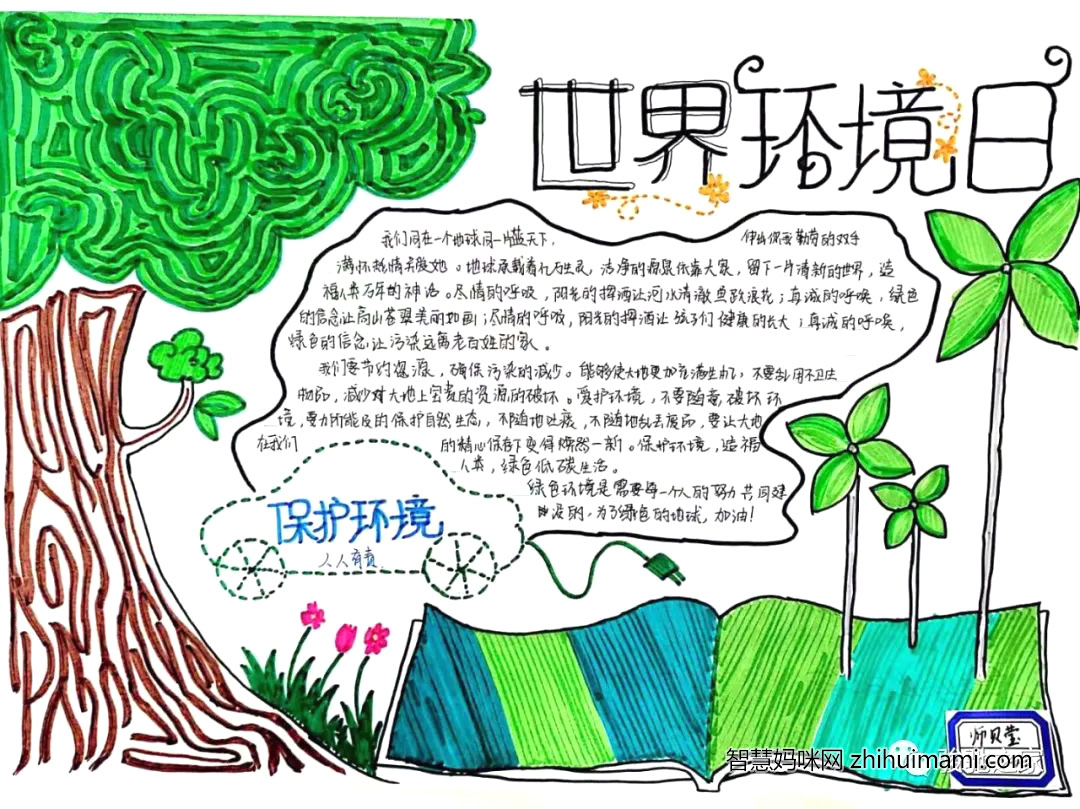 世界环境日
我们同在一个地球同一片蓝天下，伸出你我勤劳的双手
满怀热情去爱她。地球承载着亿万生灵，洁净的源泉依靠大家，留下一片清新的世界，造
福人类万年的神话。尽情的呼吸，阳光的挥洒让河水清澈鱼跃浪花；真诚的呼唤，绿色
的信念让高山苍翠美丽如画；尽情的呼吸，阳光的挥洒让孩子们健康的长大；真诚的呼唤，
绿色的信念让污染远离老百姓的家。
我们要节约资源，确保污染的减少。能够使大地更加充满生机，不要乱用不卫生
物品，减少对大地上宝贵的资源的破坏。爱护环境，不要随意破坏环
境，要力所能及的保护自然生态，不随地吐痰，不随地乱丢废品，要让大地
在我们的精心保护下变得焕然一新。保护环境，造福
人类，绿色低碳生活。
绿色环境是需要每一个人的努力共同建
设的，为了绿色的地球，加油！
保护环境
人人有责
师贝莹
智慧妈咪网 zhihuimami.com